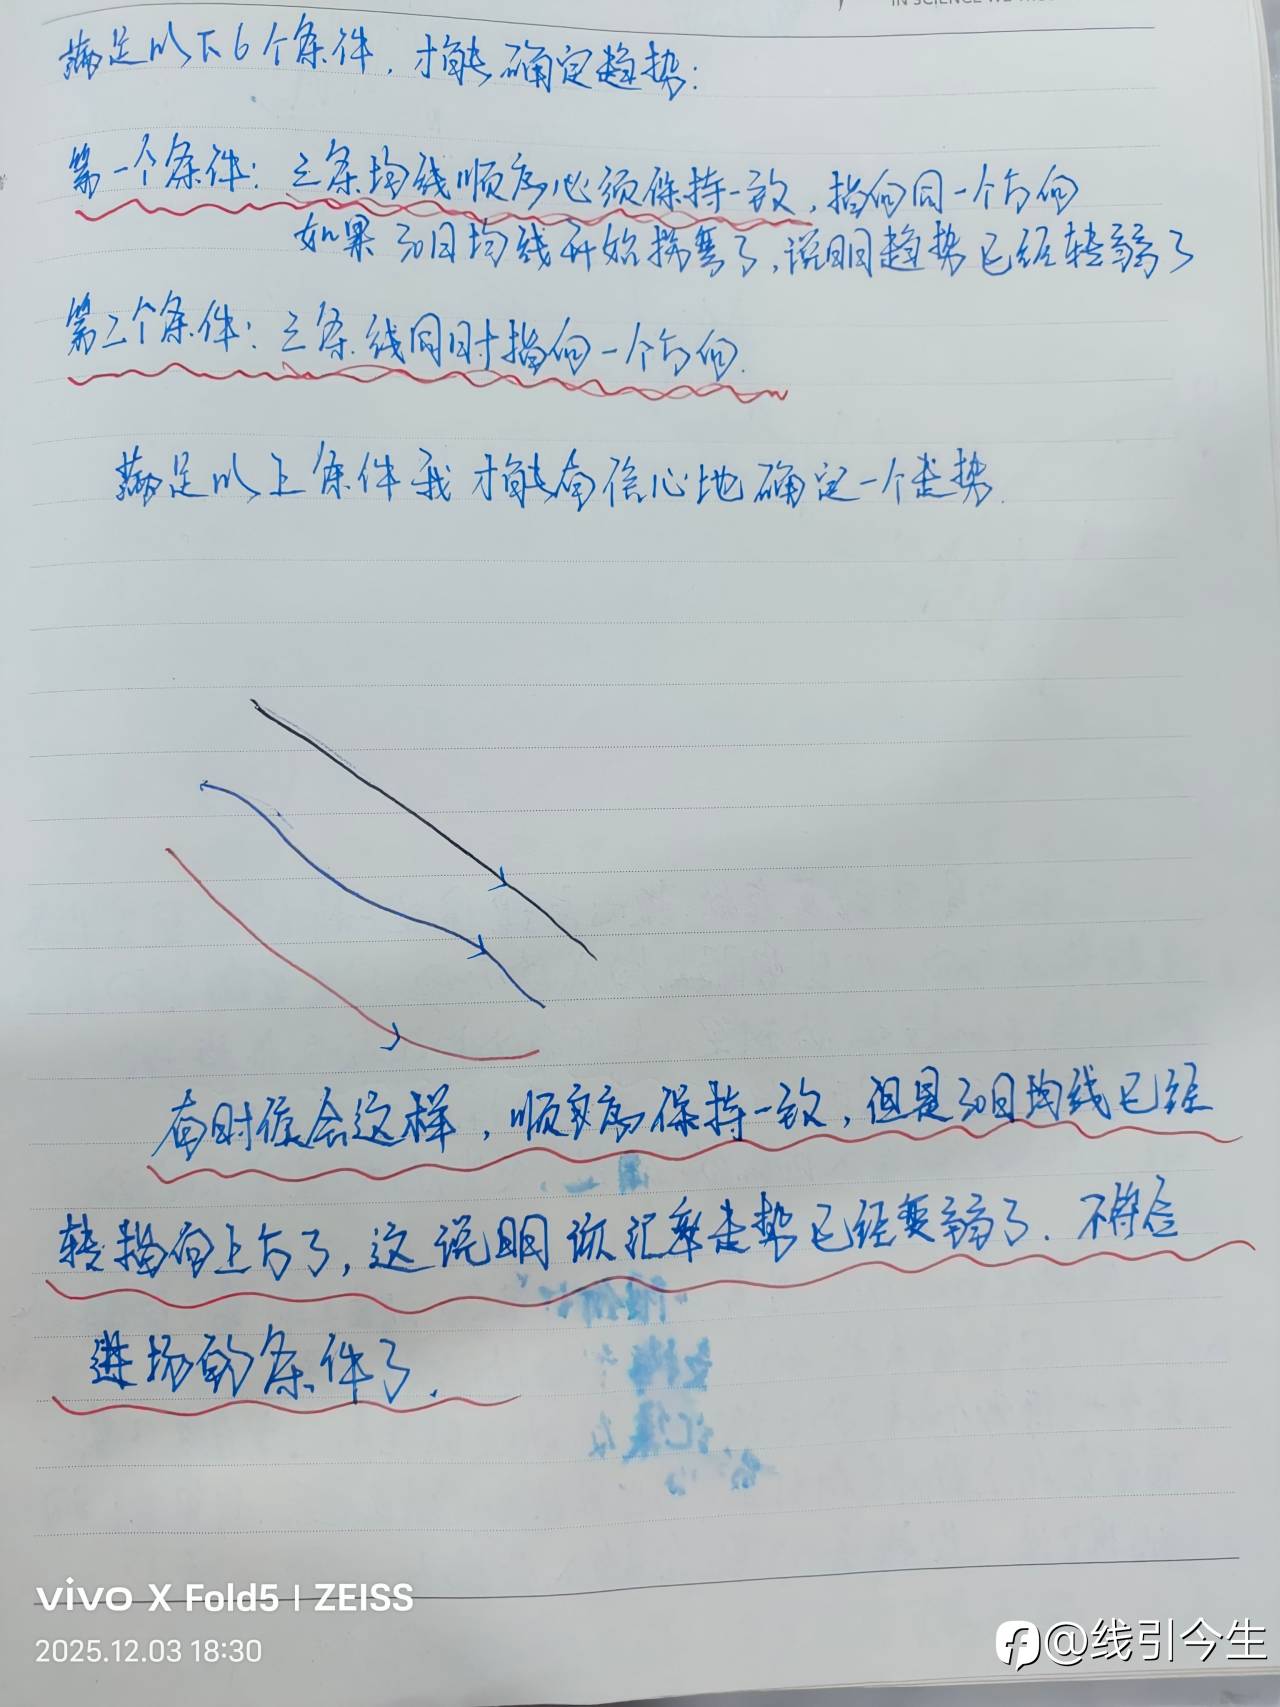 IN SCIENCE WE
满足以下6个条件,才能确定趋势:
第一个条件:三条均线顺序必须保持一致,指向同一个方向
如果30日均线开始拐弯了,说明趋势已经转弱了
第二个条件:三条线同时指向一个方向.
满足以上条件我才能有信心地确定一个走势.
有时候会这样,顺序保持一致,但是30日均线已经
转指向上方了,这说明该汇率走势已经变弱了.不符合
进场的条件了.
vivo X Fold5 | ZEISS
2025.12.03 18:30
@线引今生